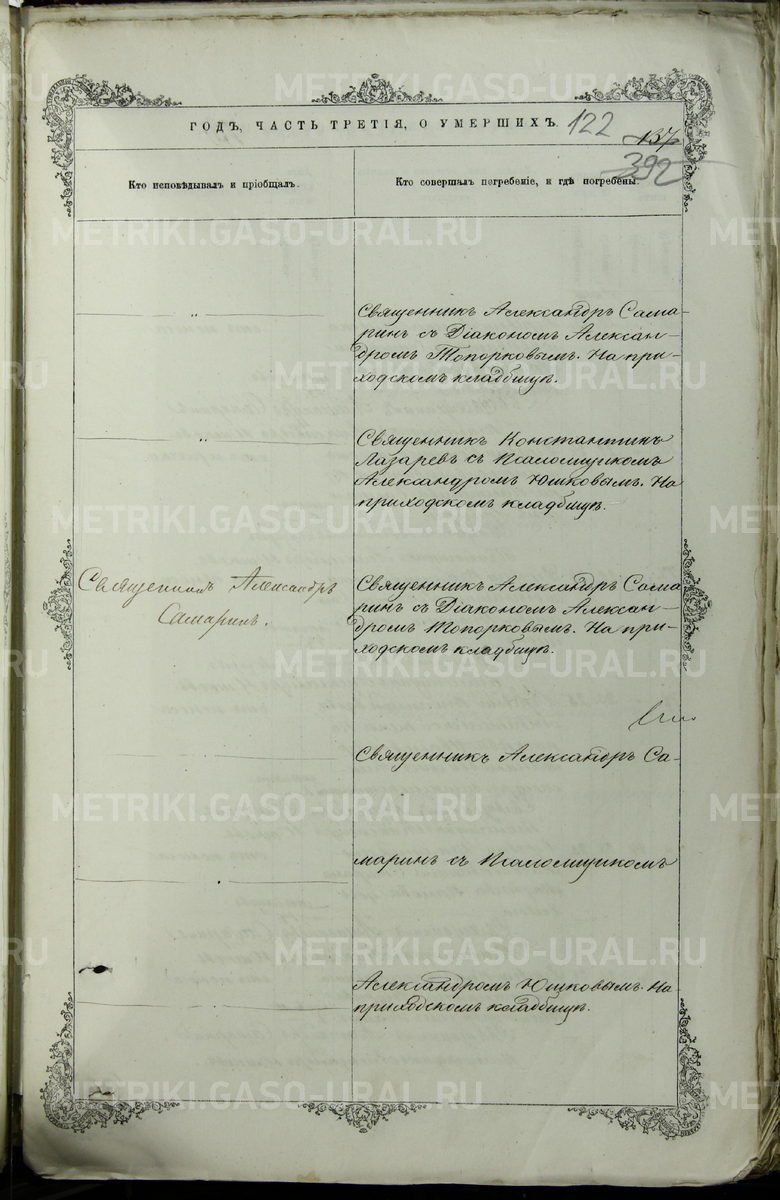 ГОДЪ, ЧАСТЬ ТРЕТІЯ, О УМЕРШИХЪ.
122
137
392
Кто исповѣдывалъ и пріобщалъ.
Кто совершалъ погребеніе, и гдѣ погребены.
Священникъ Александръ Сама-
ринъ съ Діакономъ Алексан-
дромъ Топорковымъ. На при-
ходскомъ кладбищѣ.
Священникъ Константинъ
Лазаревъ съ Псаломщикомъ
Александромъ Юшковымъ. На
приходскомъ кладбищѣ.
Священникъ Александръ
Самаринъ.
Священникъ Александръ Сама
ринъ съ Діакономъ Алексан-
дромъ Топорковымъ. На при-
ходскомъ кладбищѣ.
Священникъ Александръ Са-
маринъ съ Псаломщикомъ
Александромъ Юшковымъ. На
приходскомъ кладбищѣ.
METRIKI.GASO-URAL.RU